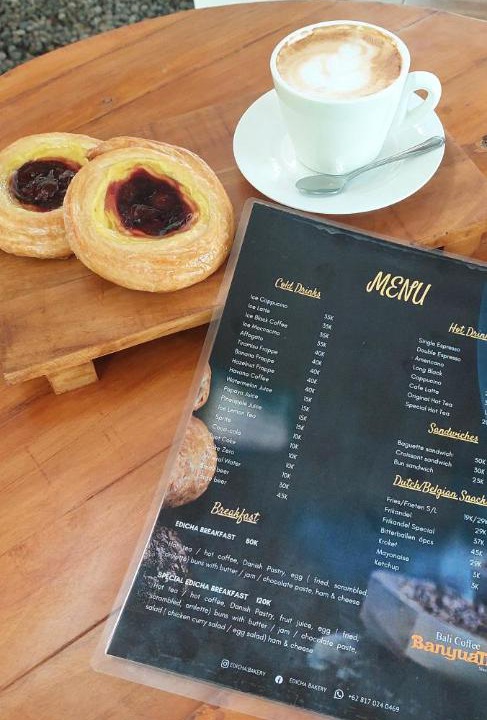 MENU
Cold Drinks
Ice Cappucino 35K
Ice Latte 35K
Ice Black Coffee 35K
Ice Mocaccino
Affogato 40K
Tiramisu Frappe 40K
Banana Frappe 40K
Hazelnut Frappe 40K
Havana Coffee 40K
Watermelon Juice
Papaya Juice 15K
Pineapple Juice 15K
Ice Lemon Tea 15K
Sprite 10K
Coca-cola 10K
Zero 10K
Water 10K
beer 30K
beer 45K
Hot
Single Espresso
Double Espresso
Americano
Long Black
Cappucino
Cafe Latte
Original Hot Tea
Special Hot Tea
Sandwiches
Baguette sandwich 30K
Croissant sandwich 30K
Bun sandwich 25K
Dutch/Belgian
Fries/Frieten S/L 19K/
Frikandel 29K
Frikandel Special 37K
Bitterballen 6pcs 45K
Kroket 29K
Mayonaise 5K
Ketchup 5K
Breakfast
EDICHA BREAKFAST 80K
tea / hot coffee, Danish Pastry, egg ( fried, scrambled,
buns with butter / jam / chocolate paste, ham & cheese
SPECIAL EDICHA BREAKFAST 120K
Hot tea / hot coffee, Danish Pastry, fruit juice, egg ( fried,
scrambled, omlette) buns with butter / jam / chocolate paste,
salad ( chicken curry salad / egg salad) ham & cheese
Bali Coffee
EDICHA.BAKERY
EDICHA BAKERY
+62 817 024 0469